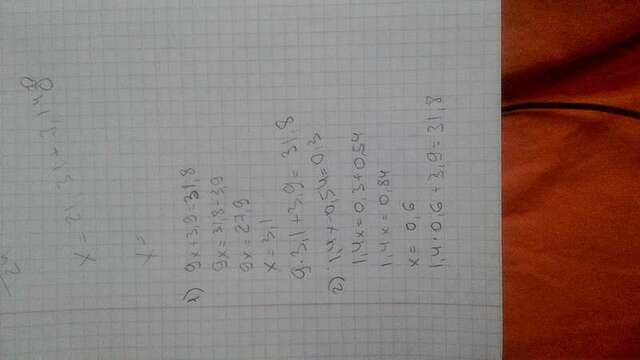 24
x = 21,31 + 3,148
x =
1) 9x+3,9=31,8
9x=31,8-3,9
9x=27,9
x=3,1
9·3,1+3,9=31,8
2) 1,4x-0,54=0,3
1,4x=0,3+0,54
1,4x=0,84
x= 0,6
1,4·0,6+3,9=31,8